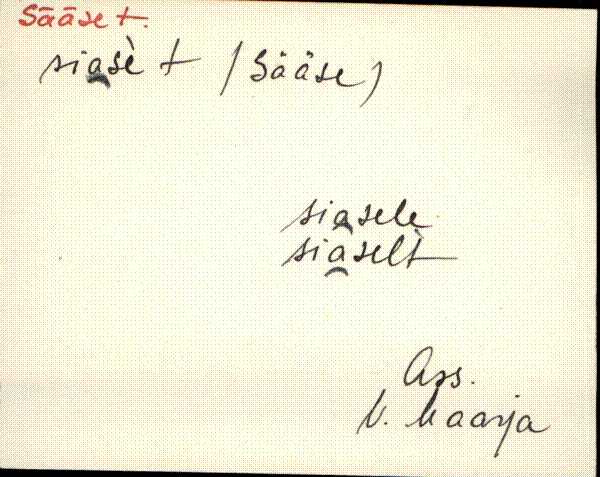 Sääset.
sia̯sèt (Sääse)
sia̯sele
sia̯selt
V. Maarja